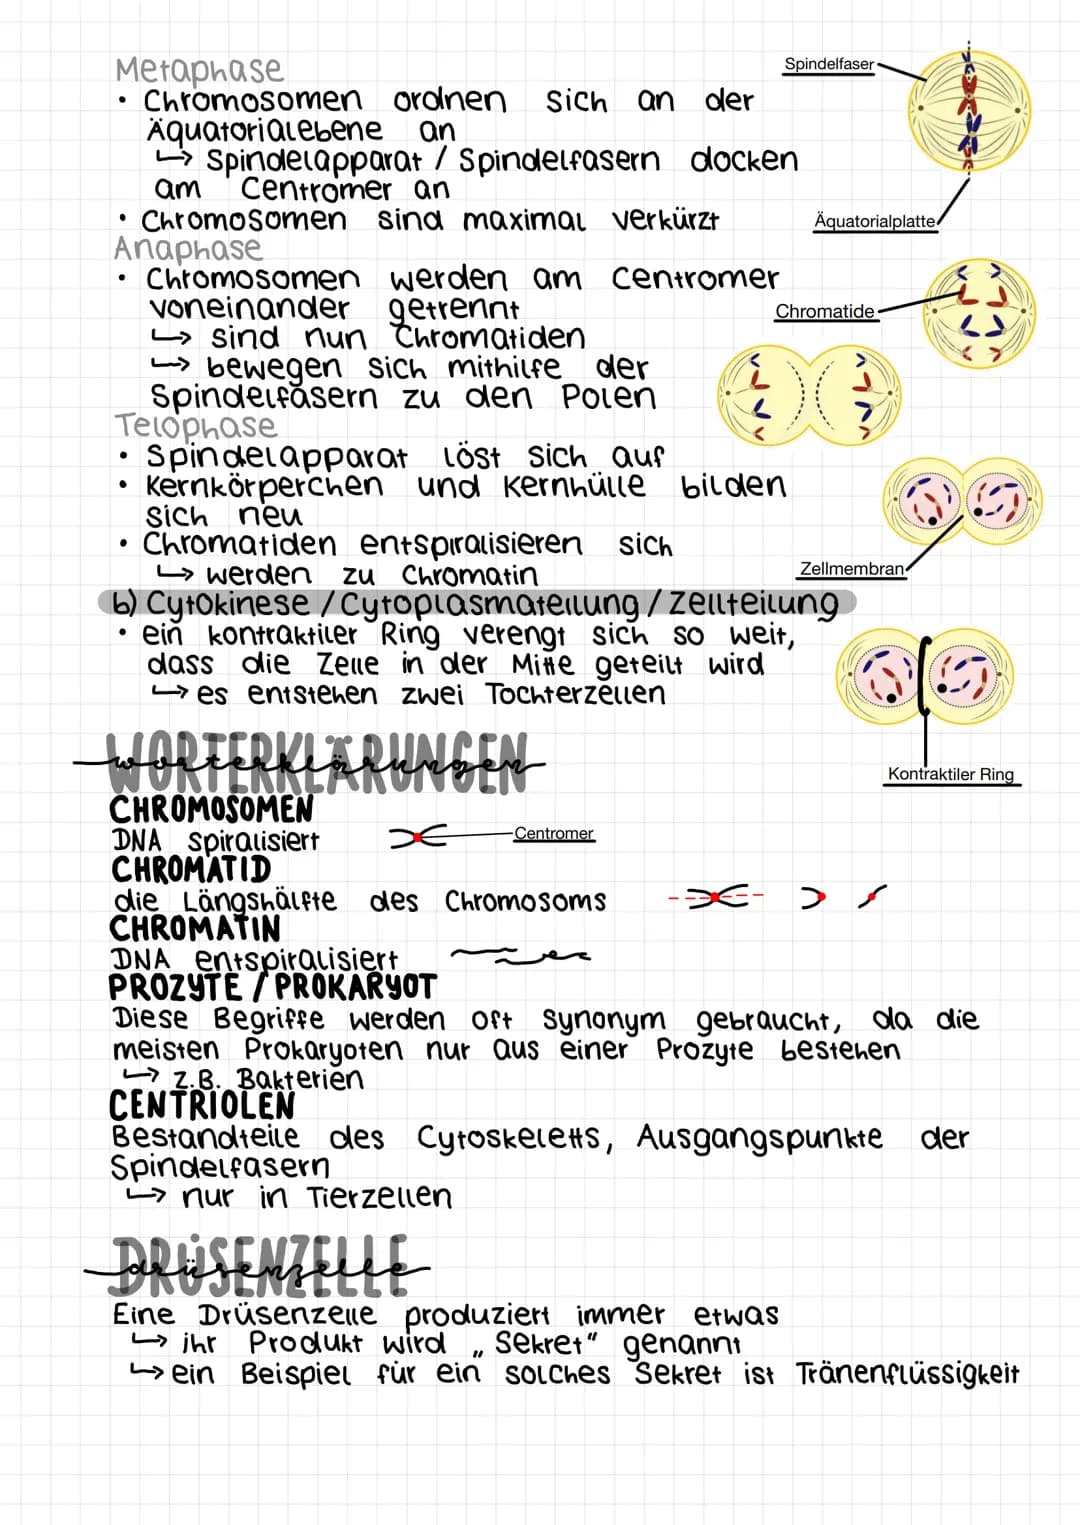 Metaphase
Spindelfaser
• Chromosomen ordnen sich an der
Äquatorialebene an
↳ Spindelapparat / Spindelfasern docken
am Centromer an
• Chromosomen sind maximal verkürzt
Äquatorialplatte
Anaphase
• Chromosomen werden am Centromer
voneinander getrennt
Chromatide
↳ sind nun Chromatiden
↳ bewegen sich mithilfe der
Spindelfasern zu den Polen
Telophase
• Spindelapparat löst sich auf
• Kernkörperchen und Kernhülle bilden
sich neu
• Chromatiden entspiralisieren sich
↳ werden zu Chromatin
Zellmembran
b) Cytokinese / Cytoplasmateilung / Zellteilung
• ein kontraktiler Ring verengt sich so weit,
dass die Zelle in der Mitte geteilt wird
↳ es entstehen zwei Tochterzellen
WORTERKLÄRUNGEN
worterklärungen
Kontraktiler Ring
CHROMOSOMEN
DNA spiralisiert
Centromer
CHROMATID
die Längshälfte des Chromosoms
CHROMATIN
DNA entspiralisiert
PROZYTE / PROKARYOT
Diese Begriffe werden oft synonym gebraucht, da die
meisten Prokaryoten nur aus einer Prozyte bestehen
↳ z.B. Bakterien
CENTRIOLEN
Bestandteile des Cytoskeletts, Ausgangspunkte der
Spindelfasern
↳ nur in Tierzellen
DRÜSENZELLE
drüsenzelle
Eine Drüsenzelle produziert immer etwas
↳ ihr Produkt wird „Sekret“ genannt
↳ ein Beispiel für ein solches Sekret ist Tränenflüssigkeit